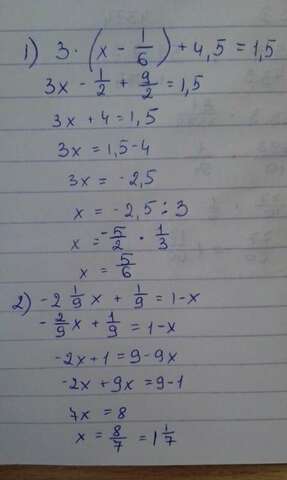 1) 3 · (x - 1/6) + 4,5 = 1,5
3x - 1/2 + 9/2 = 1,5
3x + 4 = 1,5
3x = 1,5 - 4
3x = -2,5
x = -2,5 : 3
x = -5/2 · 1/3
x = 5/6
2) -2 1/9 x + 1/9 = 1 - x
-2/9 x + 1/9 = 1 - x
-2x + 1 = 9 - 9x
-2x + 9x = 9 - 1
7x = 8
x = 8/7 = 1 1/7